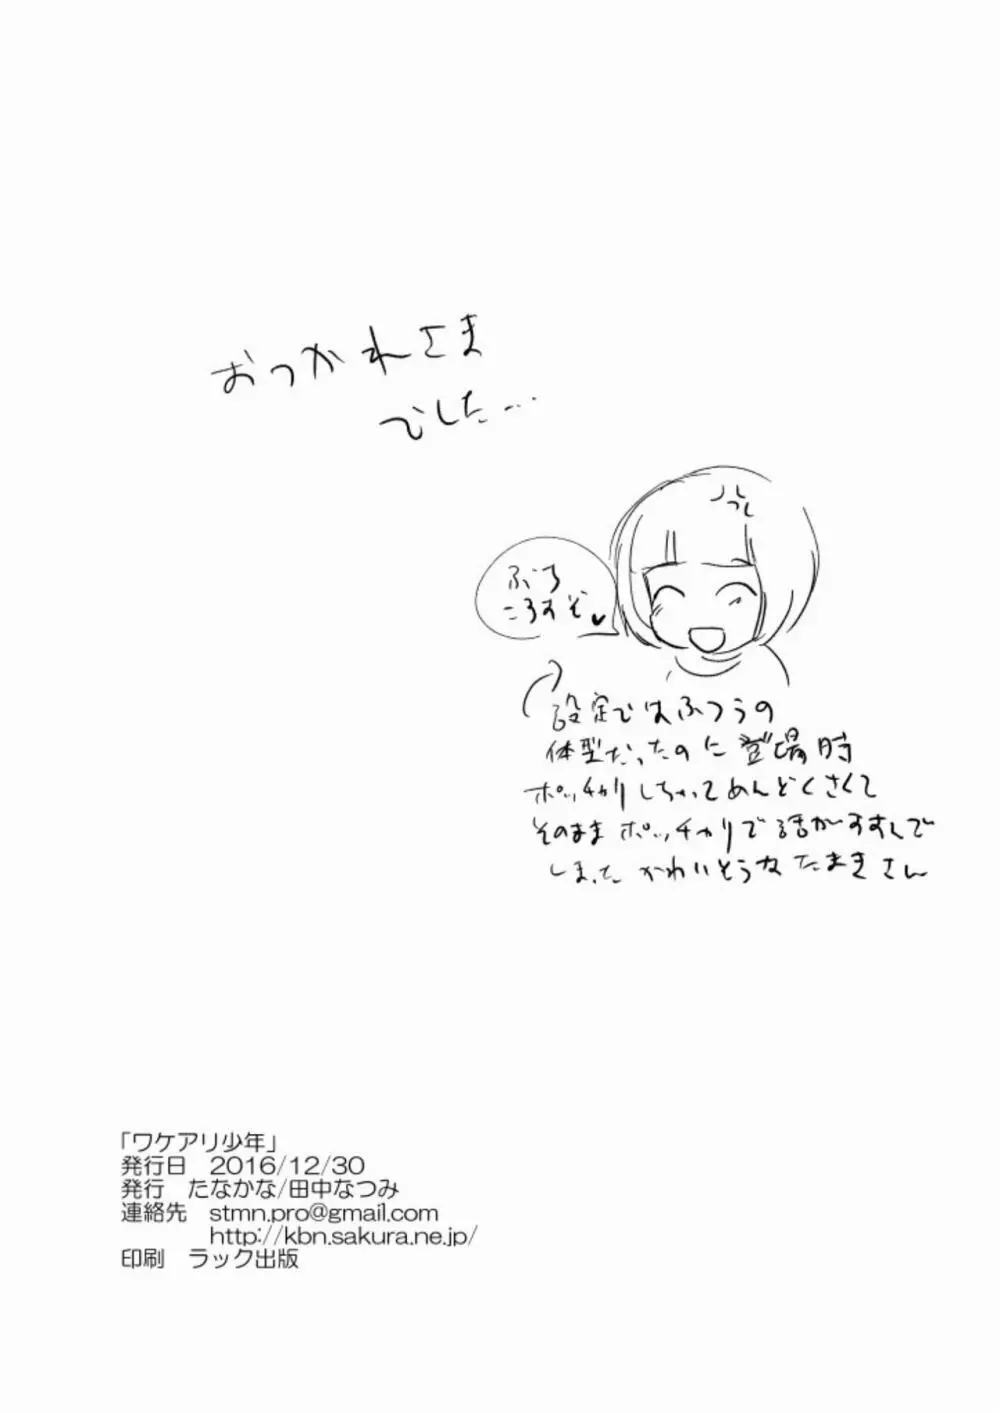 おつかれさま
でした…
ぶち
ころすぞ♥
設定ではふつうの
体型だったのに登場時
ポッチャリしちゃってめんどくさくて
そのままポッチャリで話がすすんで
しまった かわいそうな たまきさん
「ワケアリ少年」
発行日　2016/12/30
発行　たなかな/田中なつみ
連絡先　stmn.pro@gmail.com
http://kbn.sakura.ne.jp/
印刷　ラック出版